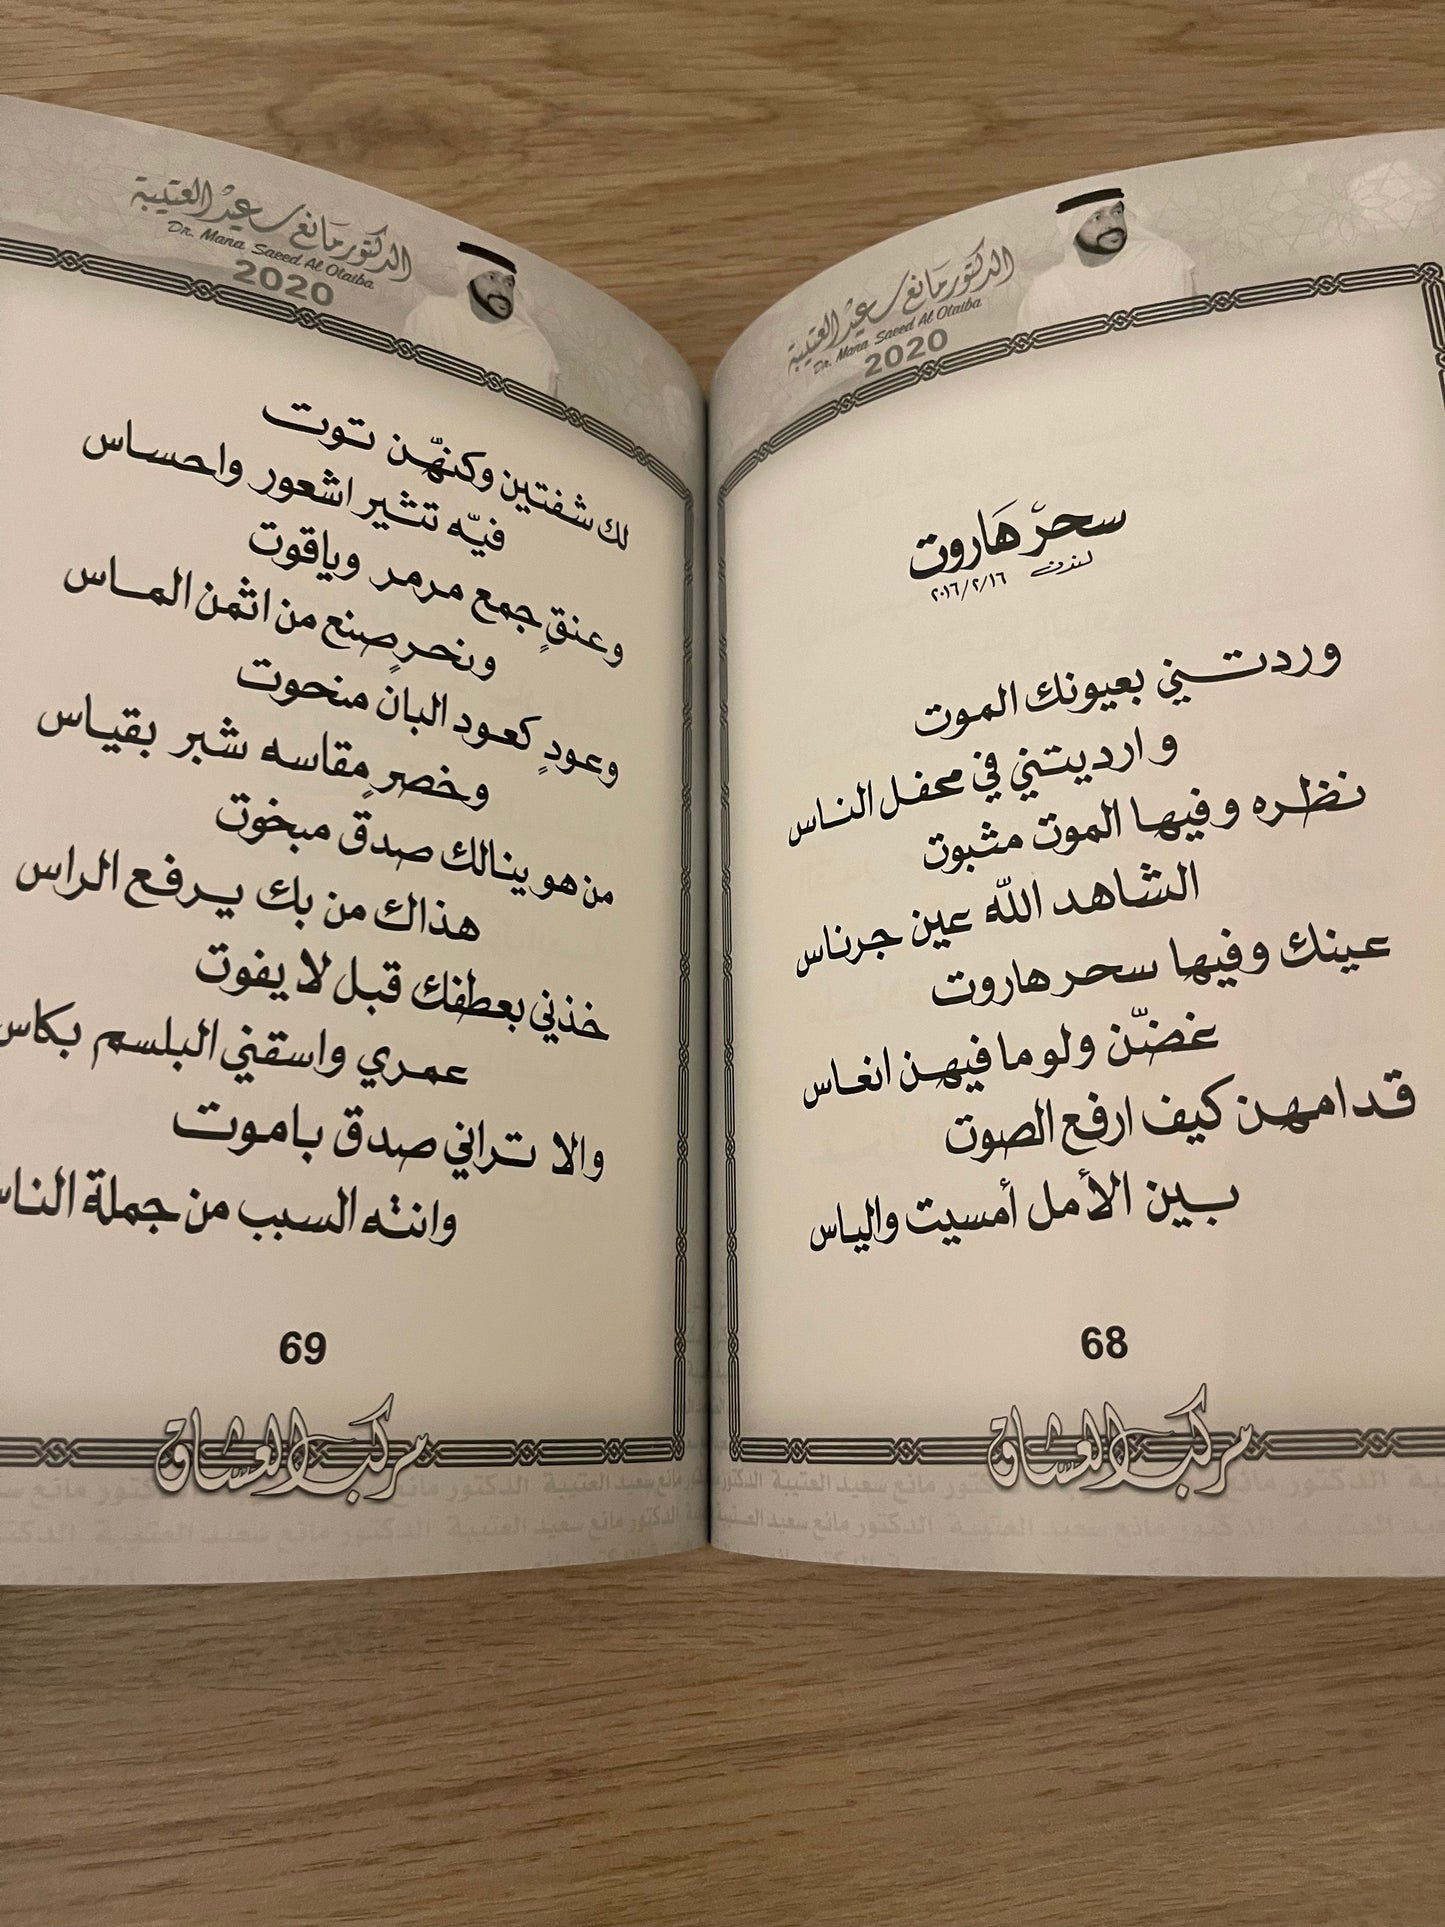 الدكتور مانع سعيد العتيبة
Dr. Mana Saeed Al Otaiba
2020
سحر هاروت
لندن ٢٠١٦/٢/١٦
وردتني بعيونك الموت
وارديتني في محفل الناس
نظره وفيها الموت مثبوت
الشاهد الله عين جرناس
عينك وفيها سحر هاروت
غضّن ولو ما فيهن انغاس
قدامهن كيف ارفع الصوت
بين الأمل أمسيت والياس
68
مركب العشاق
الدكتور مانع سعيد العتيبة
الدكتور مانع سعيد العتيبة
Dr. Mana Saeed Al Otaiba
2020
لك شفتين وكنهّن توت
فيّه تثير اشعور واحساس
وعنقٍ جمع مرمر وياقوت
ونحرٍ صنع من اثمن الماس
وعودٍ كعود البان منحوت
وخصرٍ مقاسه شبر بقياس
من هو ينالك صدق مبخوت
هذاك من بك يرفع الراس
خذني بعطفك قبل لا يفوت
عمري واسقني البلسم بكاس
والا تراني صدق باموت
وانته السبب من جملة الناس
69
مركب العشاق
الدكتور مانع سعيد العتيبة